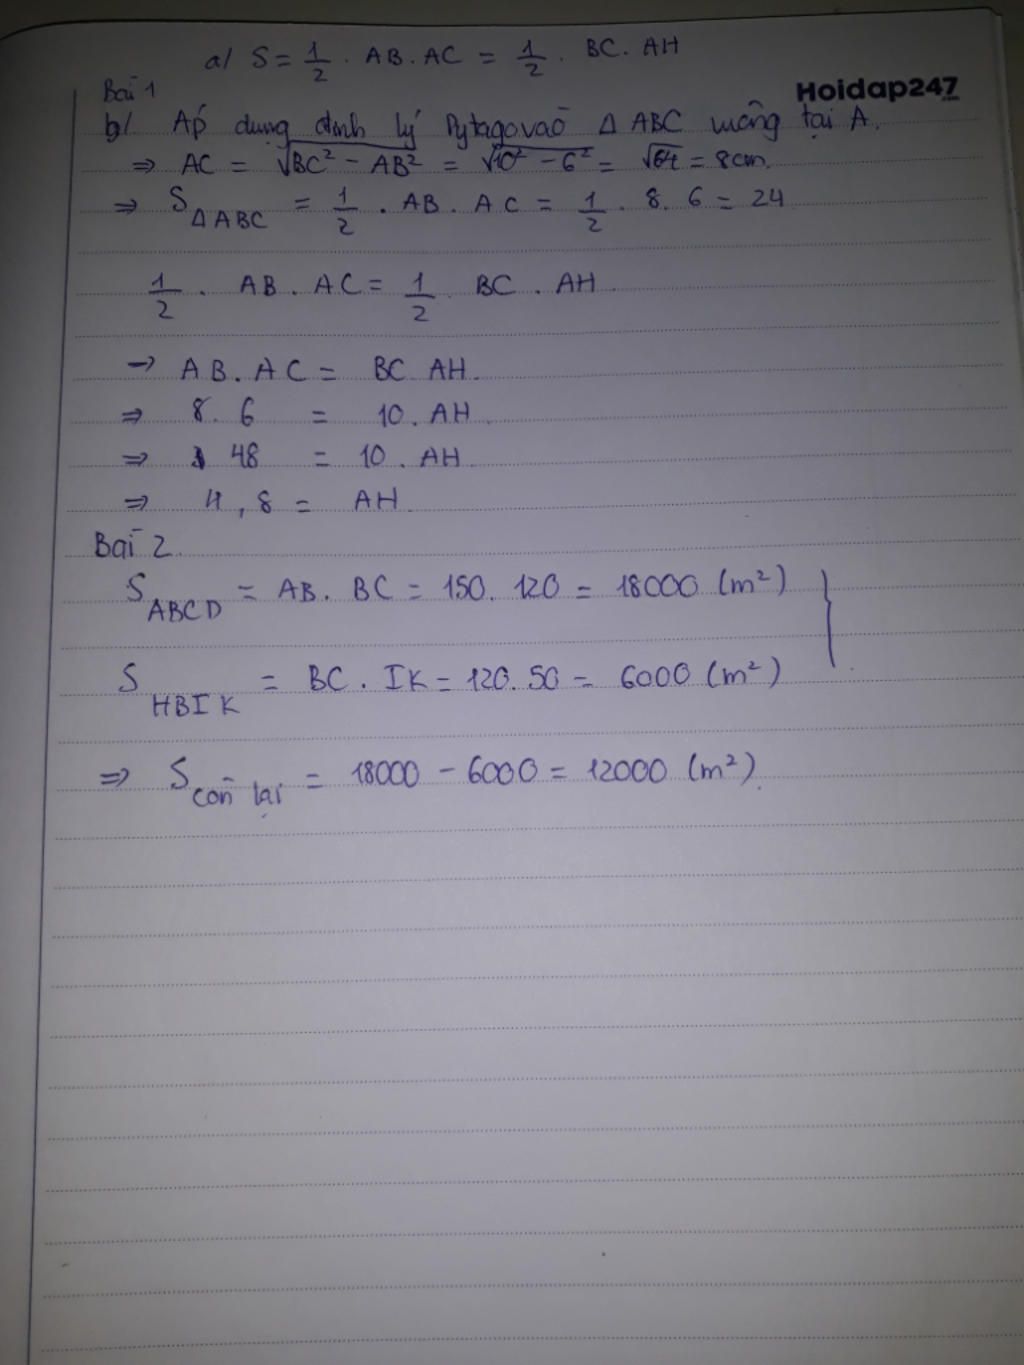 a/ S = 1/2 . AB . AC = 1/2 . BC . AH
Bài 1
Hoidap247.com
b/ Áp dụng định lý Pytago vào Δ ABC vuông tại A.
⇒ AC = √BC² - AB² = √10² - 6² = √64 = 8cm.
⇒ S ΔABC = 1/2 . AB . AC = 1/2 . 8 . 6 = 24
1/2 . AB . AC = 1/2 . BC . AH .
→ AB . AC = BC . AH .
⇒ 8 . 6 = 10 . AH .
⇒ 48 = 10 . AH .
⇒ 4,8 = AH .
Bài 2.
S ABCD = AB . BC = 150 . 120 = 18000 (m²) }
S HBIK = BC . IK = 120 . 50 = 6000 (m²)
⇒ S còn lại = 18000 - 6000 = 12000 (m²).